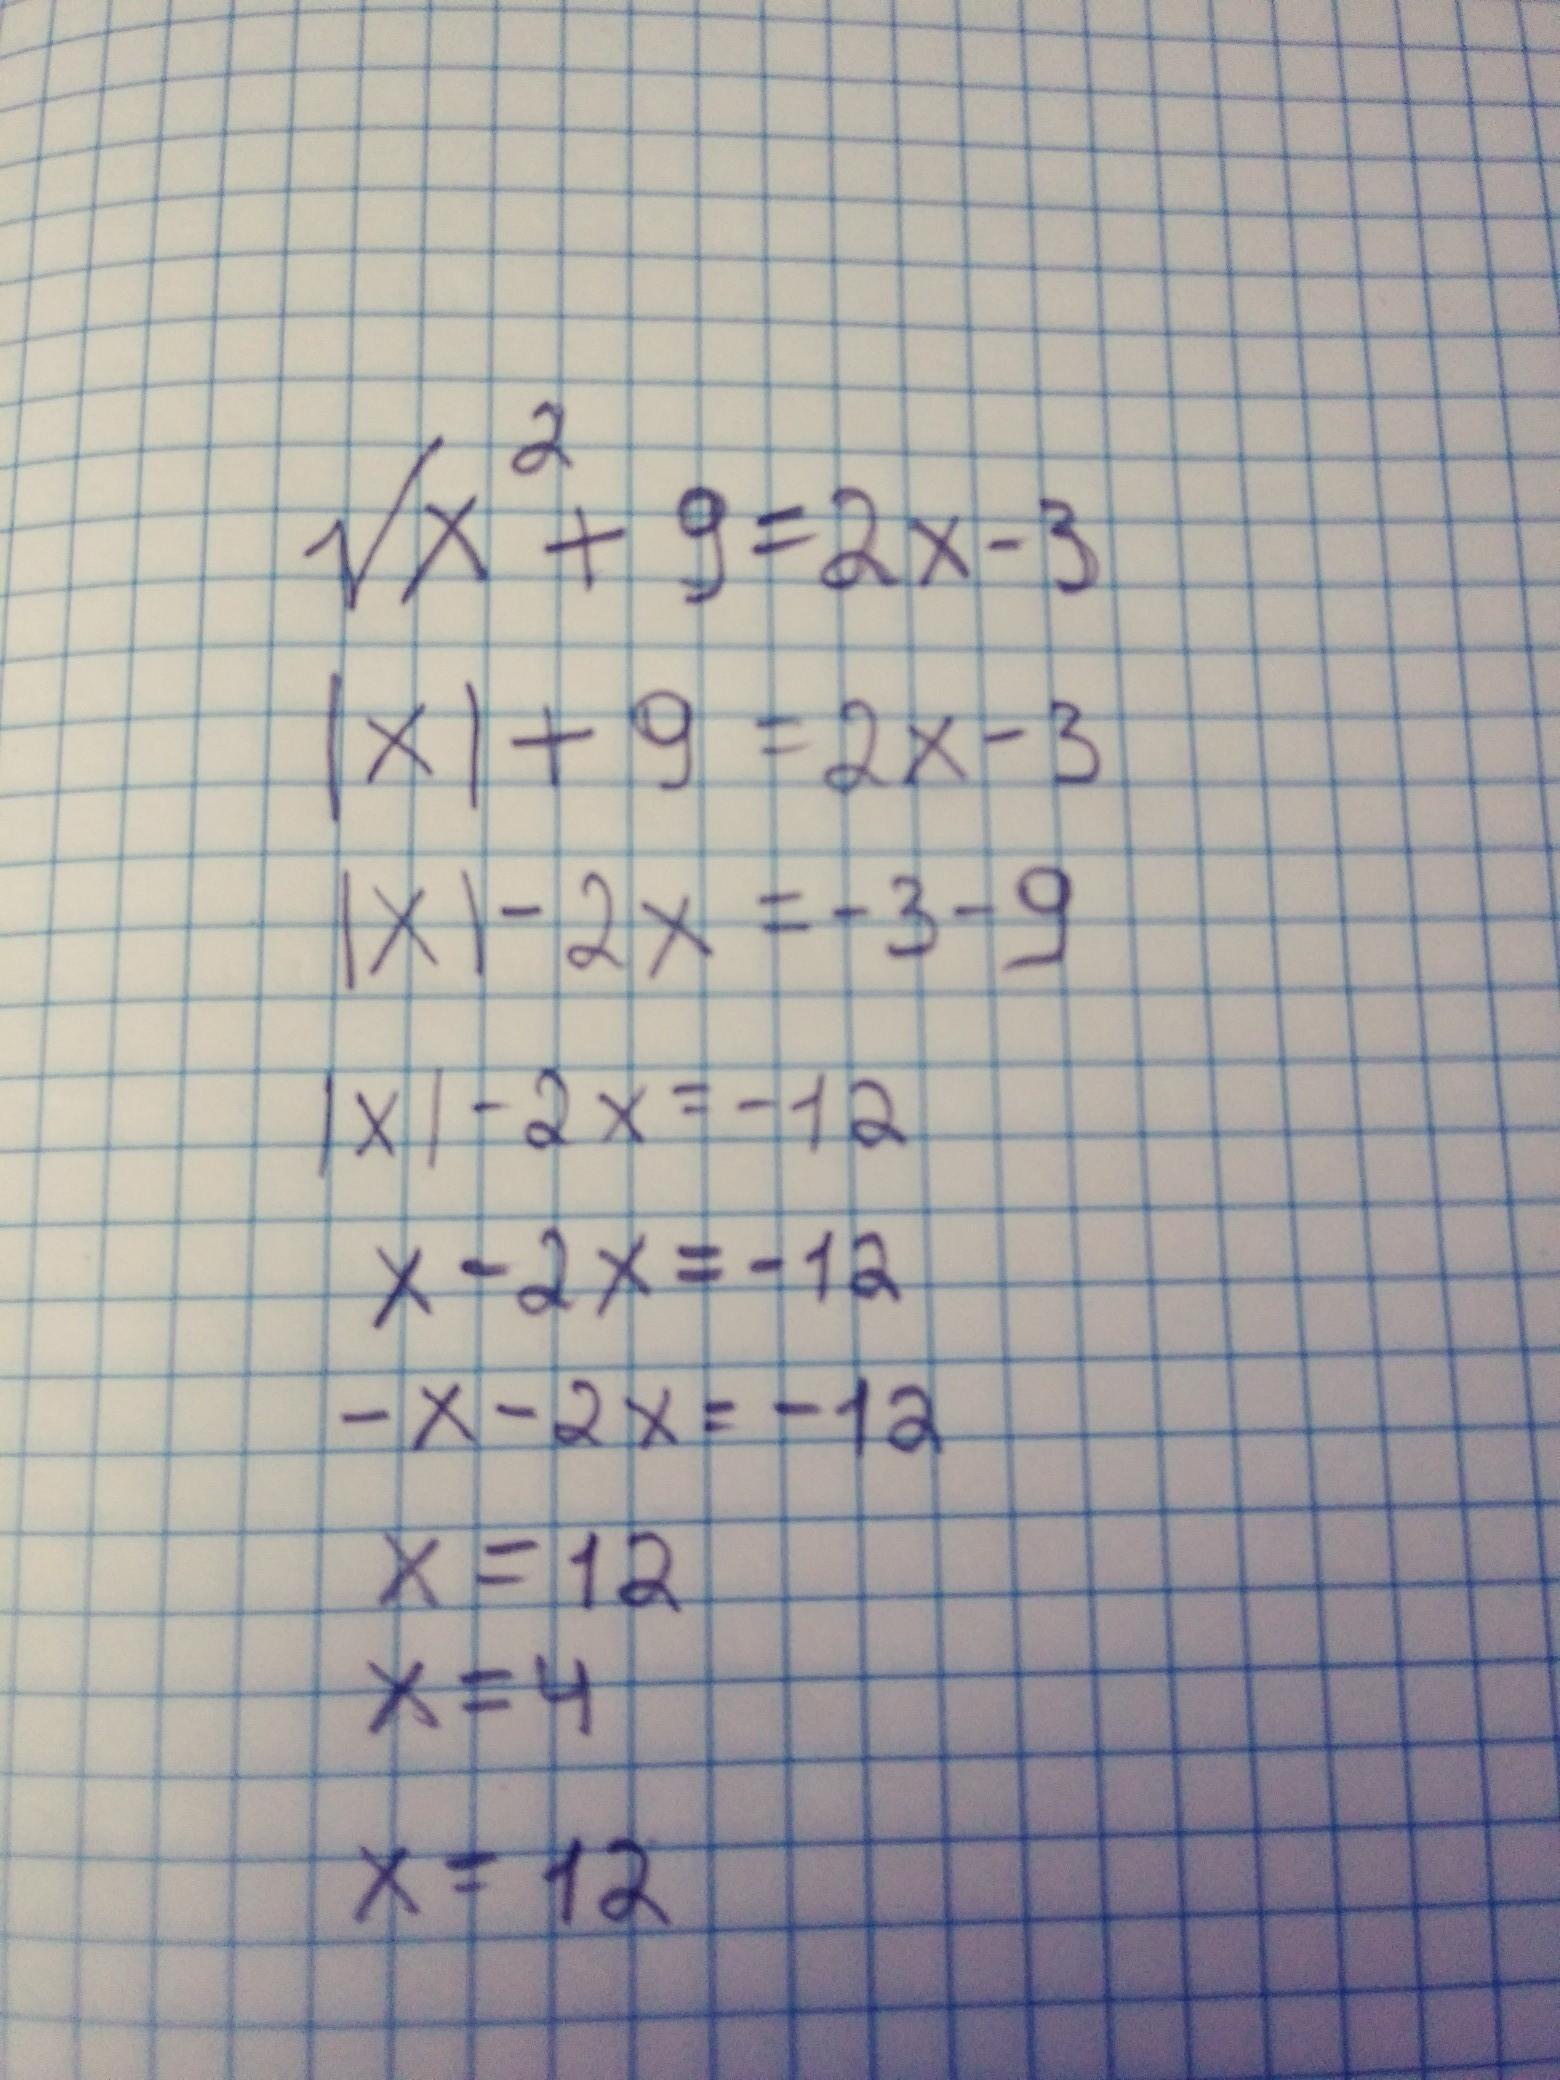 √x² + 9 = 2x - 3
|x| + 9 = 2x - 3
|x| - 2x = -3 - 9
|x| - 2x = -12
x - 2x = -12
-x - 2x = -12
x = 12
x = 4
x = 12